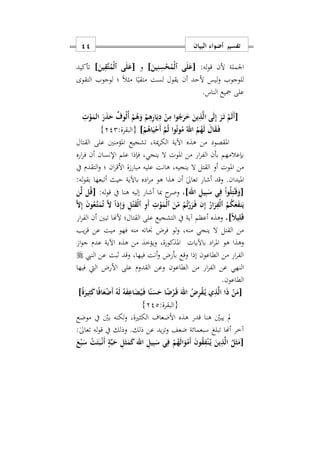 تفسير أضواء البيان ٤٤
الجملة لأن قوله: [عَلَى الْمُحْسِنِينَ] و [عَلَى الْمُتَّقِينَ] تأكيد
للوجوب وليس لأحد أن يقول لست متقيًا مثلاً ؛ لوجوب التقوى
على جميع الناس.
[أَلَمْ تَرَ إِلَى الَّذِينَ خَرَجُوا مِنْ دِيَارِهِمْ وَهُمْ أُلُوفٌ حَذَرَ الْمَوْتِ
فَقَالَ لَهُمُ اللَّهُ مُوتُوا ثُمَّ أَحْيَاهُمْ] {البقرة:٢٤٣}
المقصود من هذه الآية الكريمة، تشجيع المؤمنين على القتال
بإعلامهم بأن الفرار من الموت لا ينجي، فإذا علم الإنسان أن فراره
من الموت أو القتل لا ينجيه، هانت عليه مبارزة الأقران ؛ والتقدم في
الميدان. وقد أشار تعالى أن هذا هو مراده بالآية حيث أتبعها بقوله:
[وَقَاتِلُوا فِي سَبِيلِ اللَّهِ]، وصرح بما أشار إليه هنا في قوله: [قُلْ لَنْ
يَنْفَعَكُمُ الْفِرَارُ إِنْ فَرَرْتُمْ مِنَ الْمَوْتِ أَوِ الْقَتْلِ وَإِذًا لَا تُمَتَّعُونَ إِلَّا
قَلِيلًا]، وهذه أعظم آية في التشجيع على القتال؛ لأنها تبين أن الفرار
من القتل لا ينجي منه، ولو فرض نجاته منه فهو ميت عن قريب
وهذا هو المراد بالآيات المذكورة، ويؤخذ من هذه الآية عدم جواز
الفرار من الطاعون إذا وقع بأرض وأنت فيها، وقد ثبت عن النبي ﷺ
النهي عن الفرار من الطاعون وعن القدوم على الأرض التي فيها
الطاعون.
[مَنْ ذَا الَّذِي يُقْرِضُ اللَّهَ قَرْضًا حَسَنًا فَيُضَاعِفَهُ لَهُ أَضْعَافًا كَثِيرَةً]
{البقرة:٢٤٥}
لم يبيّن هنا قدر هذه الأضعاف الكثيرة، ولكنه بيّن في موضع
آخر أنها تبلغ سبعمائة ضعف وتزيد عن ذلك. وذلك في قوله تعالى:
[مَثَلُ الَّذِينَ يُنْفِقُونَ أَمْوَالَهُمْ فِي سَبِيلِ اللَّهِ كَمَثَلِ حَبَّةٍ أَنْبَتَتْ سَبْعَ